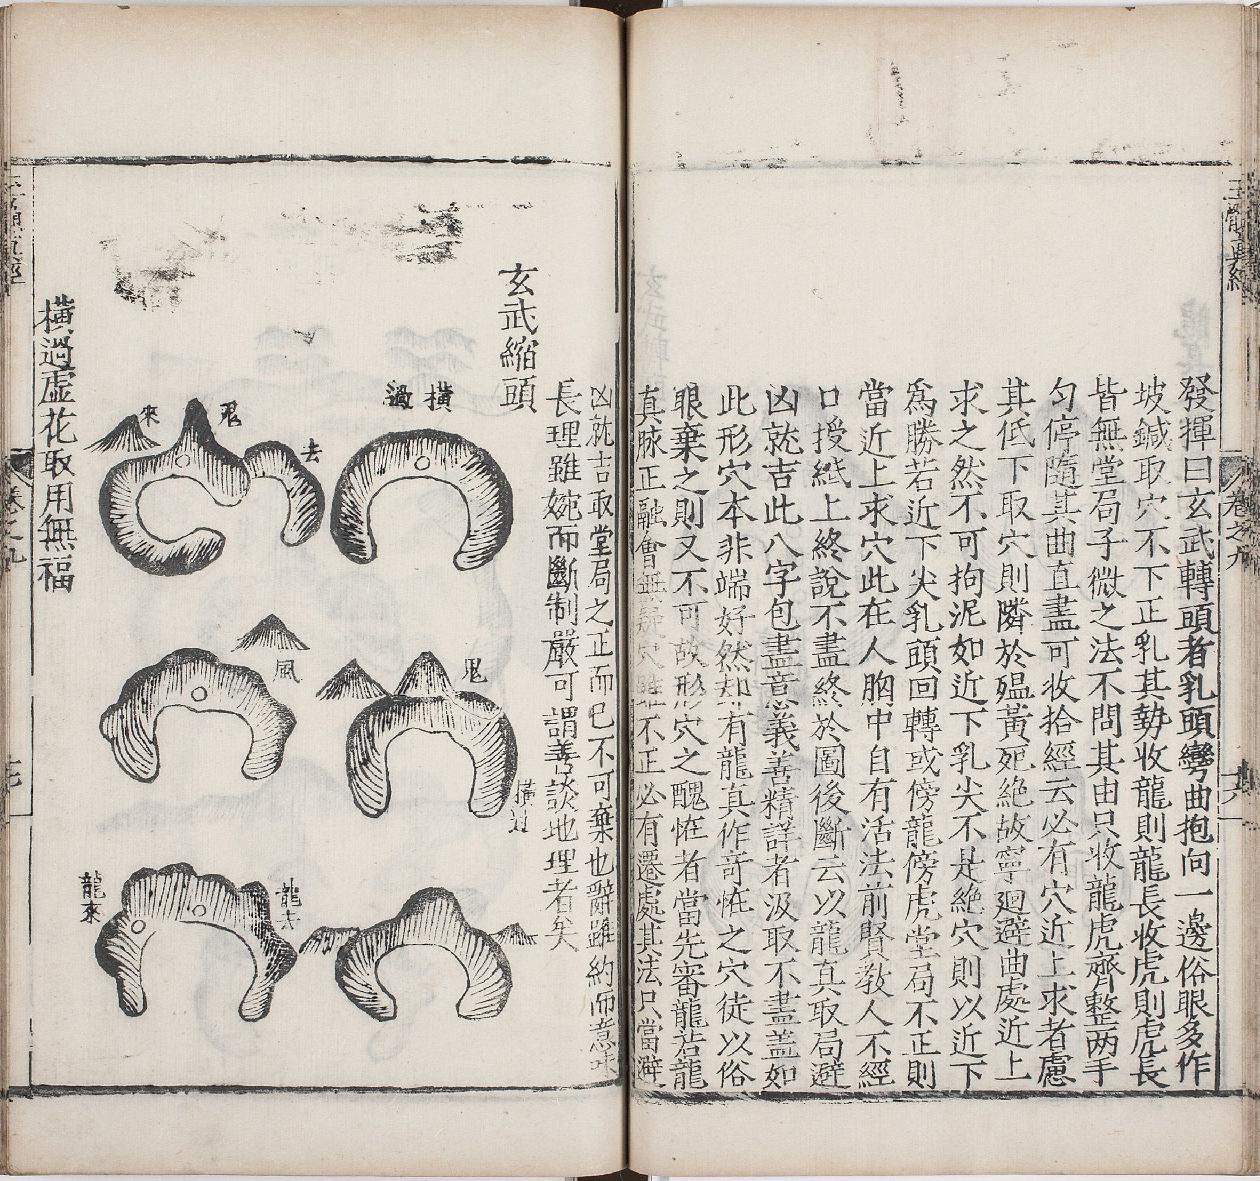 發揮曰玄武轉頭者乳頭彎曲抱向一邊俗眼多作
坡鍼取穴不下正乳其勢收龍則龍長收虎則虎長
皆無堂局子微之法不問其由只收龍虎齊整兩手
勻停隨其曲直盡可收拾經云必有穴近上求者慮
其低下取穴則隣於煴黃死絶故寧廻避曲處近上
求之然不可拘泥如近下乳尖不是絶穴則以近下
爲勝若近下尖乳頭回轉或傍龍傍虎堂局不正則
當近上求穴此在人胸中自有活法前賢教人不經
口授紙上終說不盡終於圖後斷云以龍真取局避
凶就吉此八字包盡意義善精詳者汲取不盡蓋如
此形穴本非端好然却有龍真作竒恠之穴徒以俗
眼棄之則又不可故形穴之醜恠者當先審龍若龍
真脉正融會無疑穴雖不正必有遷處其法只當避
凶就吉取堂局之正而巳不可棄也辭雖約而意味
長理雖婉而斷制嚴可謂善談地理者矣
玄武縮頭
橫過
鬼
橫過
來
鬼
去
風
龍去
龍來
橫過虛花取用無福
卷之九
卷之九